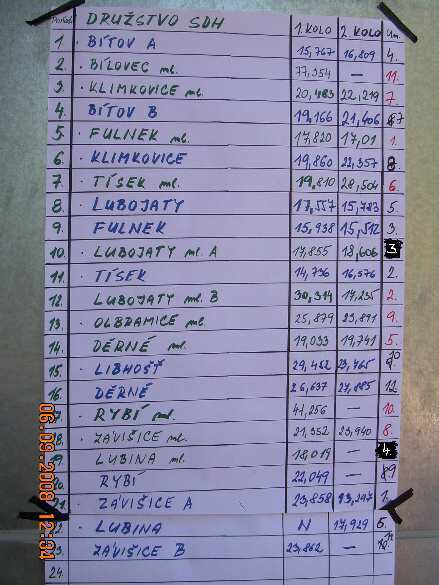 Pořadí DRUŽSTVO SDH 1. KOLO 2. KOLO Um.
1. BÍTOV A 15,767 16,809 4.
2. BÍLOVEC ml. 77,354 — 11.
3. KLIMKOVICE ml. 20,483 22,219 7.
4. BÍTOV B 19,166 21,406
5. FULNEK ml. 17,820 17,01 1.
6. KLIMKOVICE 19,860 22,357 8.
7. TÍSEK ml. 19,810 28,504 6.
8. LUBOJATY 17,557 15,783 5.
9. FULNEK 15,938 15,512 3.
10. LUBOJATY ml. A 17,855 18,606 3
11. TÍSEK 14,736 16,576 2.
12. LUBOJATY ml. B 30,314 17,235 2.
13. OLBRAMICE ml. 25,879 23,891 9.
14. DĚRNÉ ml. 19,033 19,741 5.
15. LIBHOŠŤ 29,452 23,765
16. DĚRNÉ 26,637 27,885 12
17. RYBÍ ml. 41,256 — 10.
18. ZÁVIŠICE ml. 21,352 23,940 8.
19. LUBINA ml. 18,019 — 4.
20. RYBÍ 22,049 —
21. ZÁVIŠICE A 23,858 13,247 1.
LUBINA N 17,929 6.
23. ZÁVIŠICE B 23,862 —
24.
06.09.2008 12:34